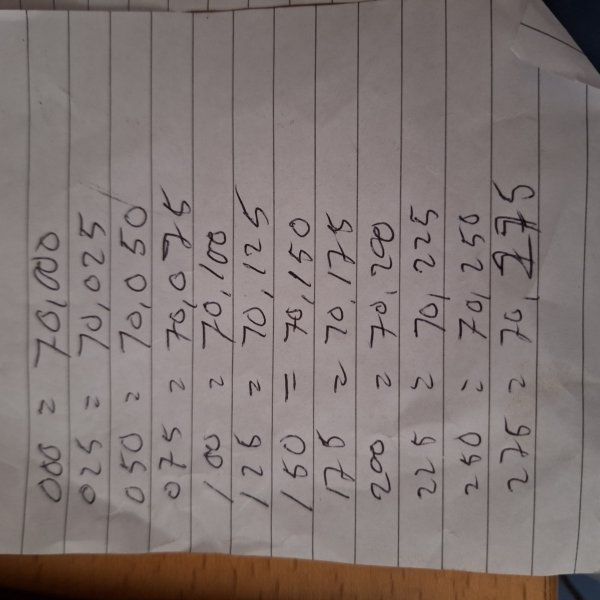 000 = 70,000
025 = 70,025
050 = 70,050
075 = 70,075
100 = 70,100
125 = 70,125
150 = 70,150
175 = 70,175
200 = 70,200
225 = 70,225
250 = 70,250
275 = 70,275